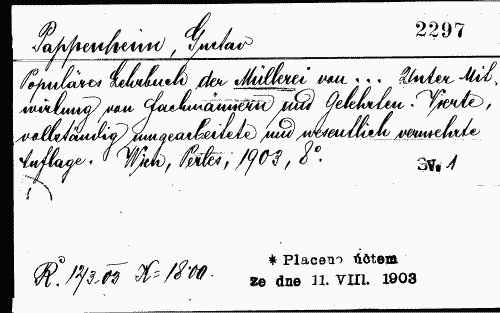 2297
Pappenheim, Gustav
Populäres Lehrbuch der Müllerei von ... Unter Mit-
wirkung von Fachmännern und Gelehrten. Vierte,
vollständig umgearbeitete und wesentlich vermehrte
Auflage. Wien, Perles, 1903, 8°.
Sv. 1
* Placeno účtem
R° 12/3 03 K= 18·00.
ze dne 11. VIII. 1903